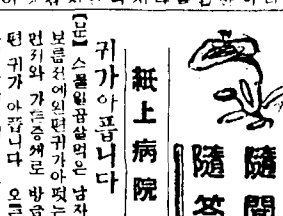 隨問
隨答
紙上病院
귀가아픕니다
【문】 스물일곱살먹은 남자
보름전에왼편귀가아펏는
먼저와 가튼증세로 방금
편 귀가 아픕니다